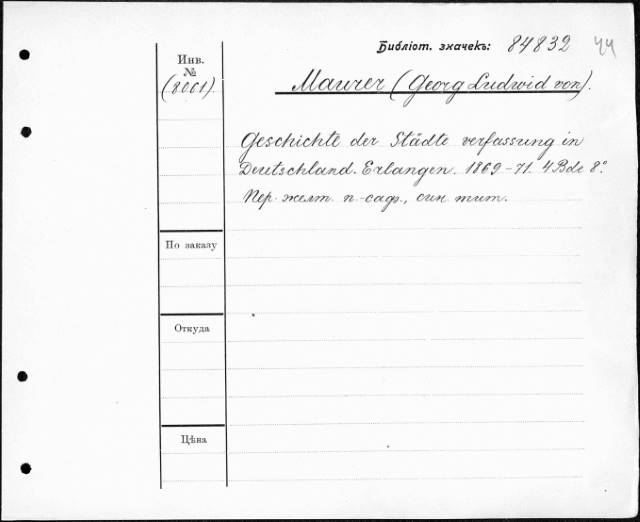 Библіот. значекъ: 84832 44
Инв.
№
(8061).
Maurer (Georg Ludwid von).
Geschichte der Städte verfassung in
Deutschland. Erlangen. 1869-71. 4 Bde 8°.
Пер. желт. п.-саф., син. тит.
По заказу
Откуда
Цѣна